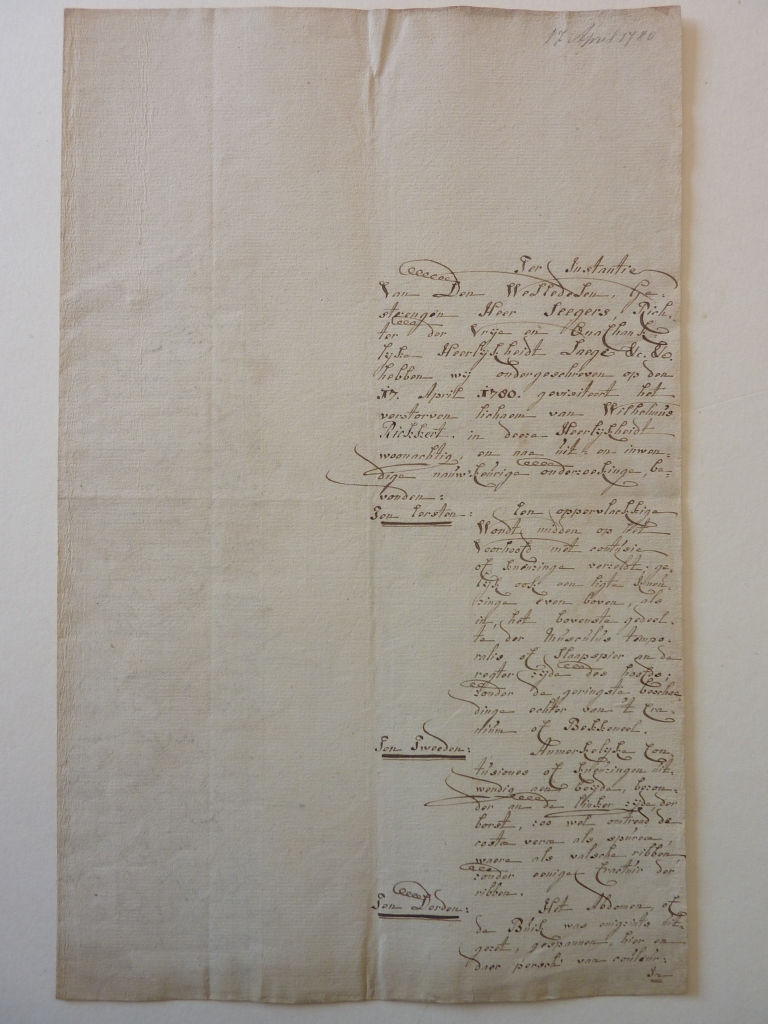 17 April 1780
Ter Instantie
Van Den WelEdelen, Ge-
strengen Heer Seegers, Rich-
ter der Vrije en
lijke Heerlijkheidt Laege &c. &c.
hebben wij ondergeschreven op den
17. April 1780. gevisiteert het
verstorven lichaem van Wilhelmus
Rickkert. in deeze Heerlijkheidt
woonachtig, en nae uit- en inwen-
dige nauwkeurige onderzoekinge, be-
vonden:
Ten Eersten: Een oppervlakkige
Wondt midden op het
Voorhoofd met contusie
of kneuzinge verzelt: ge-
lijk ook een ligte kneu-
zinge even boven, als
in, het bovenste gedeel-
te der Musculus tempo-
ralis of Slaapspier an de
regter zijde des hoofds;
zonder de geringste bescha-
dinge echter van 't Cra-
nium of Bekkeneel.
Ten Tweeden: Anmerkelijke Con-
tusiones of kneuzingen uit-
wendig aen beijde, bezon-
der an de linker zijde, der
borst, zoo wel omtrend de
costae verae als spuriae,
waere als valsche ribben,
zonder eenige Fractuir der
ribben.
Ten Derden: Het Abdomen, of
de Buik was enigzints uit-
gezet, gespannen, hier en
daer persch van couleur:
In